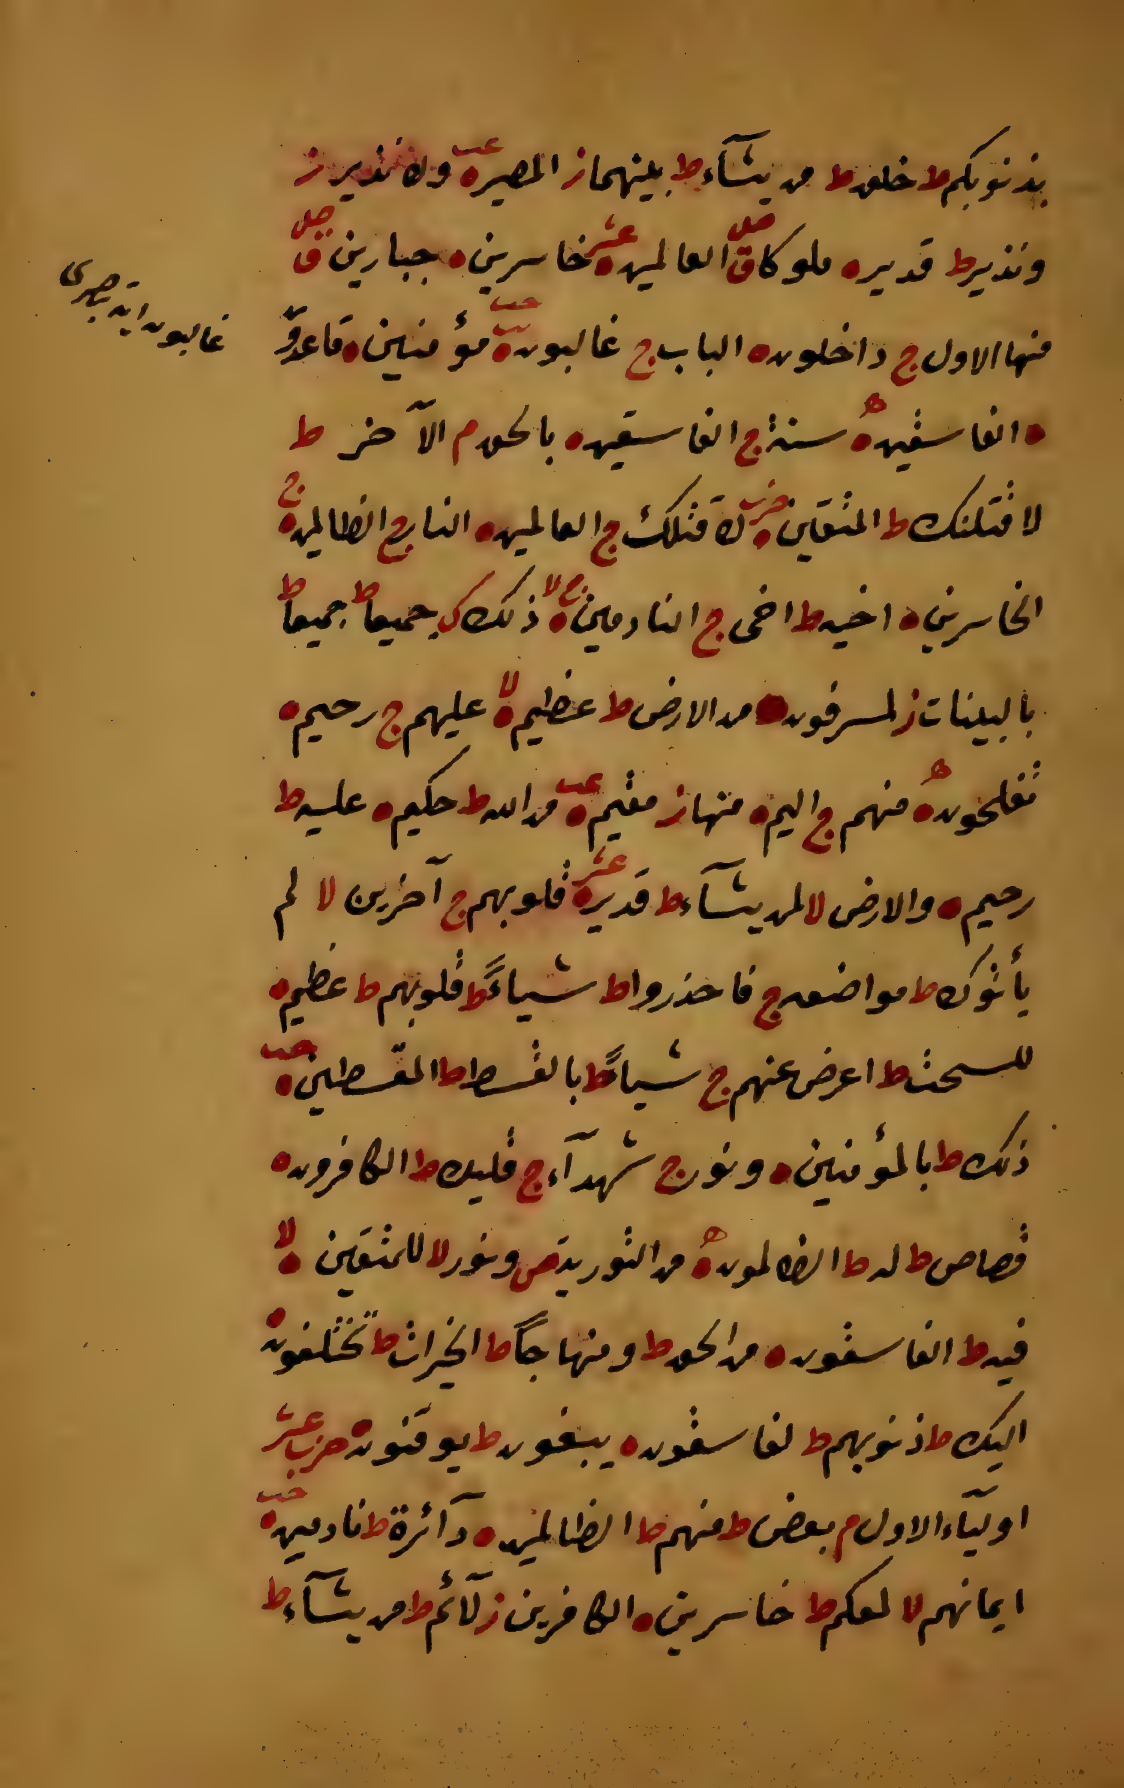 بذنوبكم ط خلق ط من يشآء ط بينهما ز المصير ه عب ولا نذير ز
ونذير ط قدير ه ملوكا ق صلى العالمين ه عشر خاسرين ه جبارين ق صلى
منها الاول ج داخلون ه الباب ج غالبون ه حب مؤمنين ه قاعدون
ه الفاسقين ه هـ سنة ج الفاسقين ه بالحق م الآخر ط
لاقتلنك ط المتقين ه حزب لاقتلك ج العالمين ه النار ج الظالمين ه ج
الخاسرين ه اخيه ط اخى ج النادمين ه ج لا ذلك ك جميعا ط جميعا ط
بالبينات ز لمسرفون ه من الارض ط عظيم ه لا عليهم ج رحيم ه
تفلحون ه هـ منهم ج اليم ه منها ز مقيم ه عب من الله ط حكيم ه عليه ط
رحيم ه والارض لا لمن يشآء ط قدير ه عشر قلوبهم ج آخرين لا لم
يأتوك ط مواضعه ج فاحذروا ط شياءً ط قلوبهم ط عظيم ه
للسحت ط اعرض عنهم ج شياءً ط بالقسط ط المقسطين ه حب
ذلك ط بالمؤمنين ه ونور ج شهدآء ج قليلا ط الكافرون ه
قصاص ط له ط الظالمون ه هـ من التورية ص ونور لا للمتقين ه لا
فيه ط الفاسقون ه من الحق ط ومنهاجاً ط الخيرات ط تختلفون ه
اليك ط ذنوبهم ط لفاسقون ه يبغون ط يوقنون ه حزب عشر
اوليآء الاول م بعض ط منهم ط الظالمين ه دآئرة ط نادمين ه خب
ايمانهم لا لمعكم ط خاسرين ه الكافرين ز لآئم ط من يشآء ط
غالبون اية بصرى